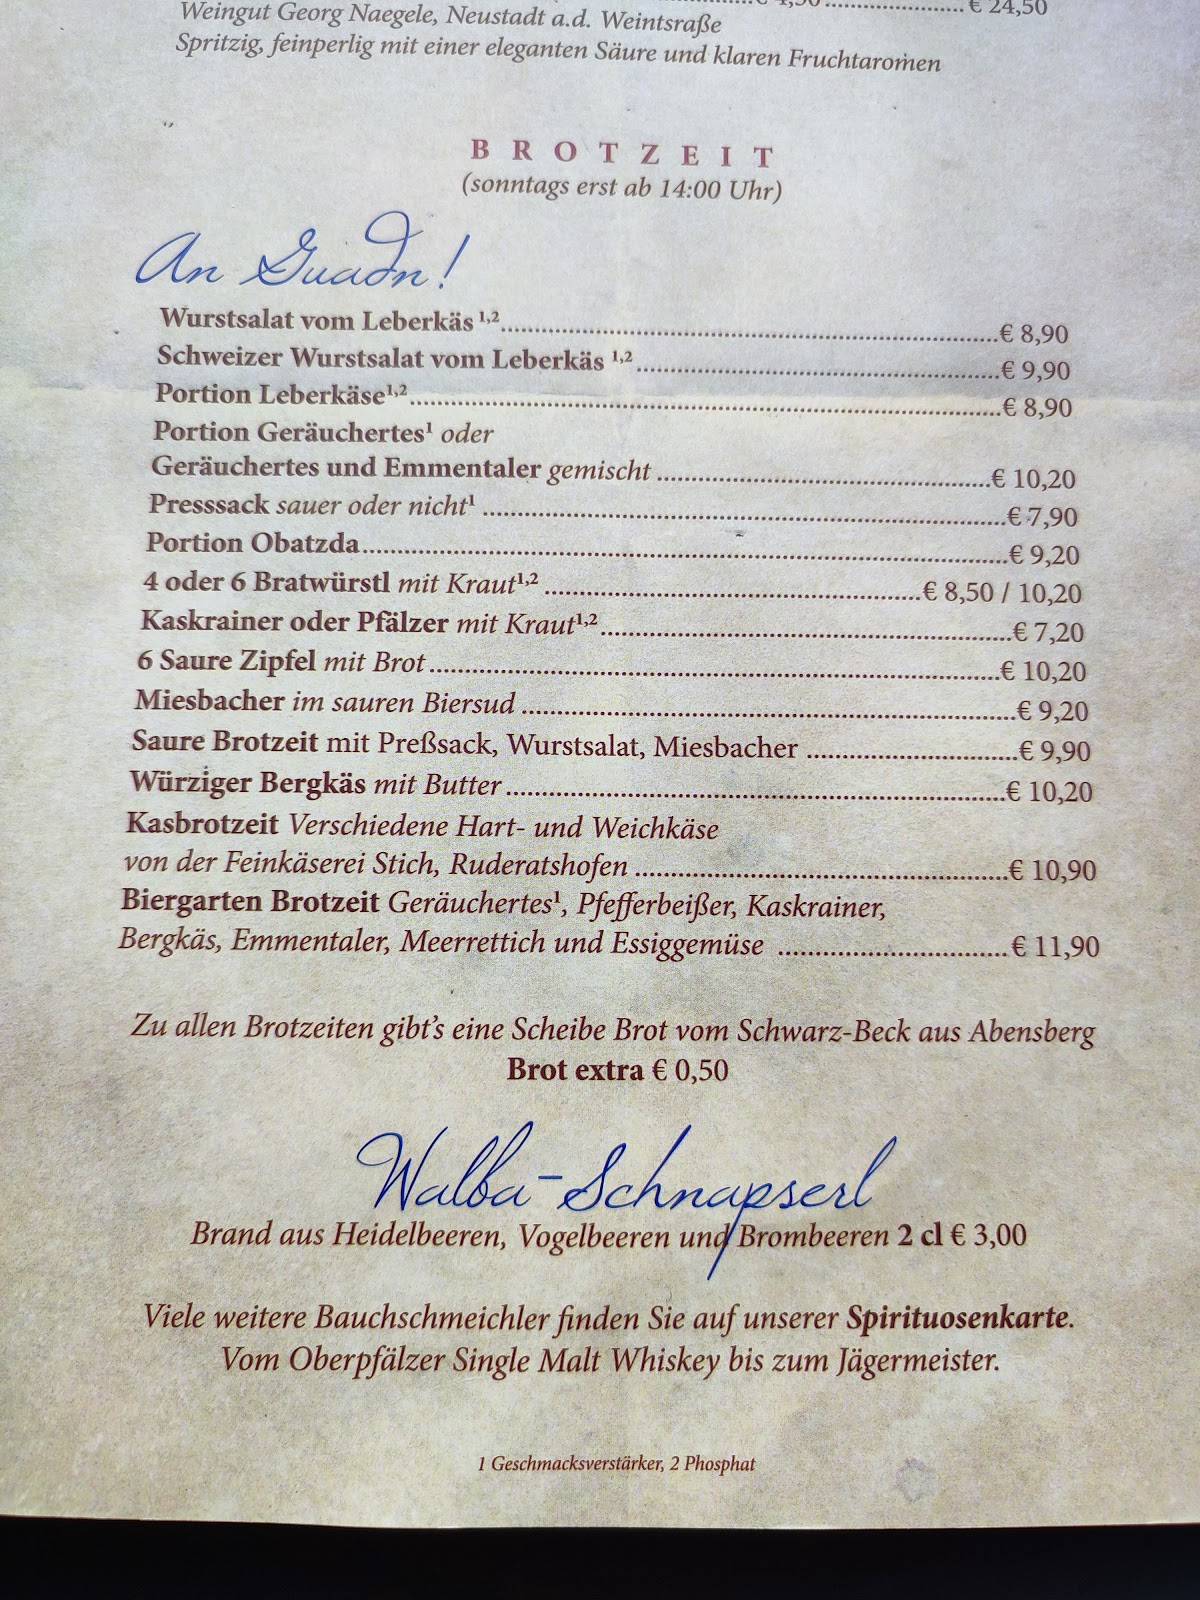 € 24,50
Weingut Georg Naegele, Neustadt a.d. Weintsraße
Spritzig, feinperlig mit einer eleganten Säure und klaren Fruchtaromen
BROTZEIT
(sonntags erst ab 14:00 Uhr)
An Guadn!
Wurstsalat vom Leberkäs 1,2 € 8,90
Schweizer Wurstsalat vom Leberkäs 1,2 € 9,90
Portion Leberkäse1,2 € 8,90
Portion Geräuchertes1 oder
Geräuchertes und Emmentaler gemischt € 10,20
Presssack sauer oder nicht1 € 7,90
Portion Obatzda € 9,20
4 oder 6 Bratwürstl mit Kraut1,2 € 8,50 / 10,20
Kaskrainer oder Pfälzer mit Kraut1,2 € 7,20
6 Saure Zipfel mit Brot € 10,20
Miesbacher im sauren Biersud € 9,20
Saure Brotzeit mit Preßsack, Wurstsalat, Miesbacher € 9,90
Würziger Bergkäs mit Butter € 10,20
Kasbrotzeit Verschiedene Hart- und Weichkäse
von der Feinkäserei Stich, Ruderatshofen € 10,90
Biergarten Brotzeit Geräuchertes1, Pfefferbeißer, Kaskrainer,
Bergkäs, Emmentaler, Meerrettich und Essiggemüse € 11,90
Zu allen Brotzeiten gibt's eine Scheibe Brot vom Schwarz-Beck aus Abensberg
Brot extra € 0,50
Walba-Schnapserl
Brand aus Heidelbeeren, Vogelbeeren und Brombeeren 2 cl € 3,00
Viele weitere Bauchschmeichler finden Sie auf unserer Spirituosenkarte.
Vom Oberpfälzer Single Malt Whiskey bis zum Jägermeister.
1 Geschmacksverstärker, 2 Phosphat